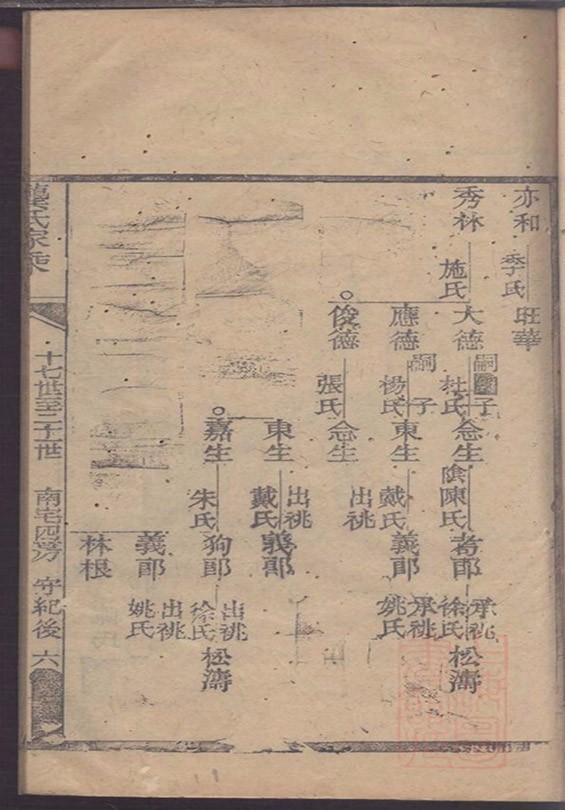 亦和
李氏
旺華
秀林
施氏
大德
嗣子
杜氏
念生
陳氏
承祧
徐氏
松濤
應德
嗣子
楊氏
東生
出祧
戴氏
義郎
承祧
姚氏
俊德
張氏
念生
東生
出祧
戴氏
義郎
嘉生
朱氏
狗郎
出祧
徐氏
松濤
義郎
出祧
姚氏
林根
氏家乘
十七世至二十一世
南宅四房
守紀後
六